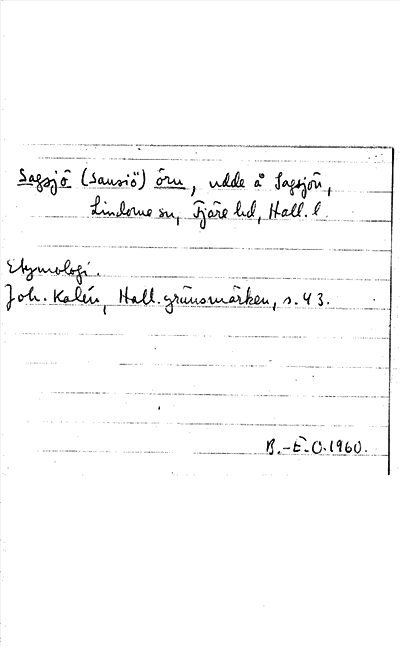 Sagsjö (Sausiö) örn, udde å Sagsjön,
Lindome sn, Fjäre hd, Hall. l.
Etymologi.
Joh. Kalén, Hall. gränsmärken, s. 43.
B.-E. O. 1960.